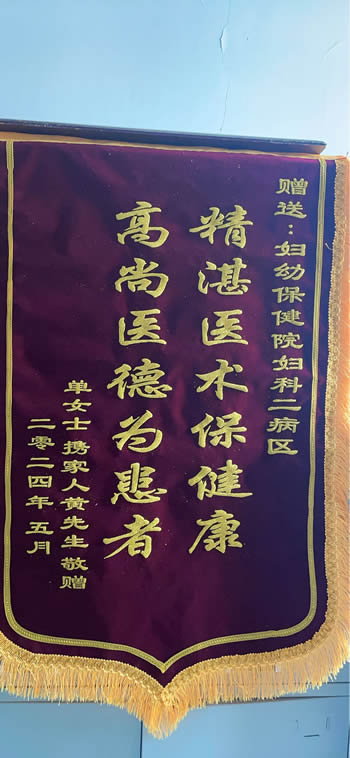 赠送：妇幼保健院妇科二病区
精湛医术保健康
高尚医德为患者
单女士 携家人黄先生敬赠
二零二四年五月